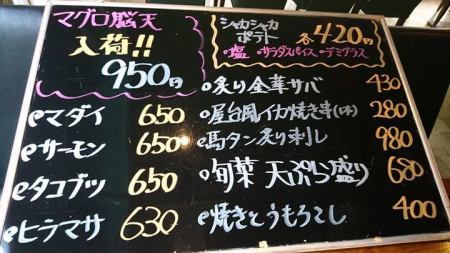 マグロ脳天
入荷!!
950円
シャカシャカ
ポテト 各420円
・塩 ・サラダスパイス ・デミグラス
マダイ 650
サーモン 650
タコブツ 650
ヒラマサ 630
炙り金華サバ 430
屋台風イカ焼き串(1本) 280
馬タン炙り刺し 980
旬菜 天ぷら盛り 680
焼きとうもろこし 400